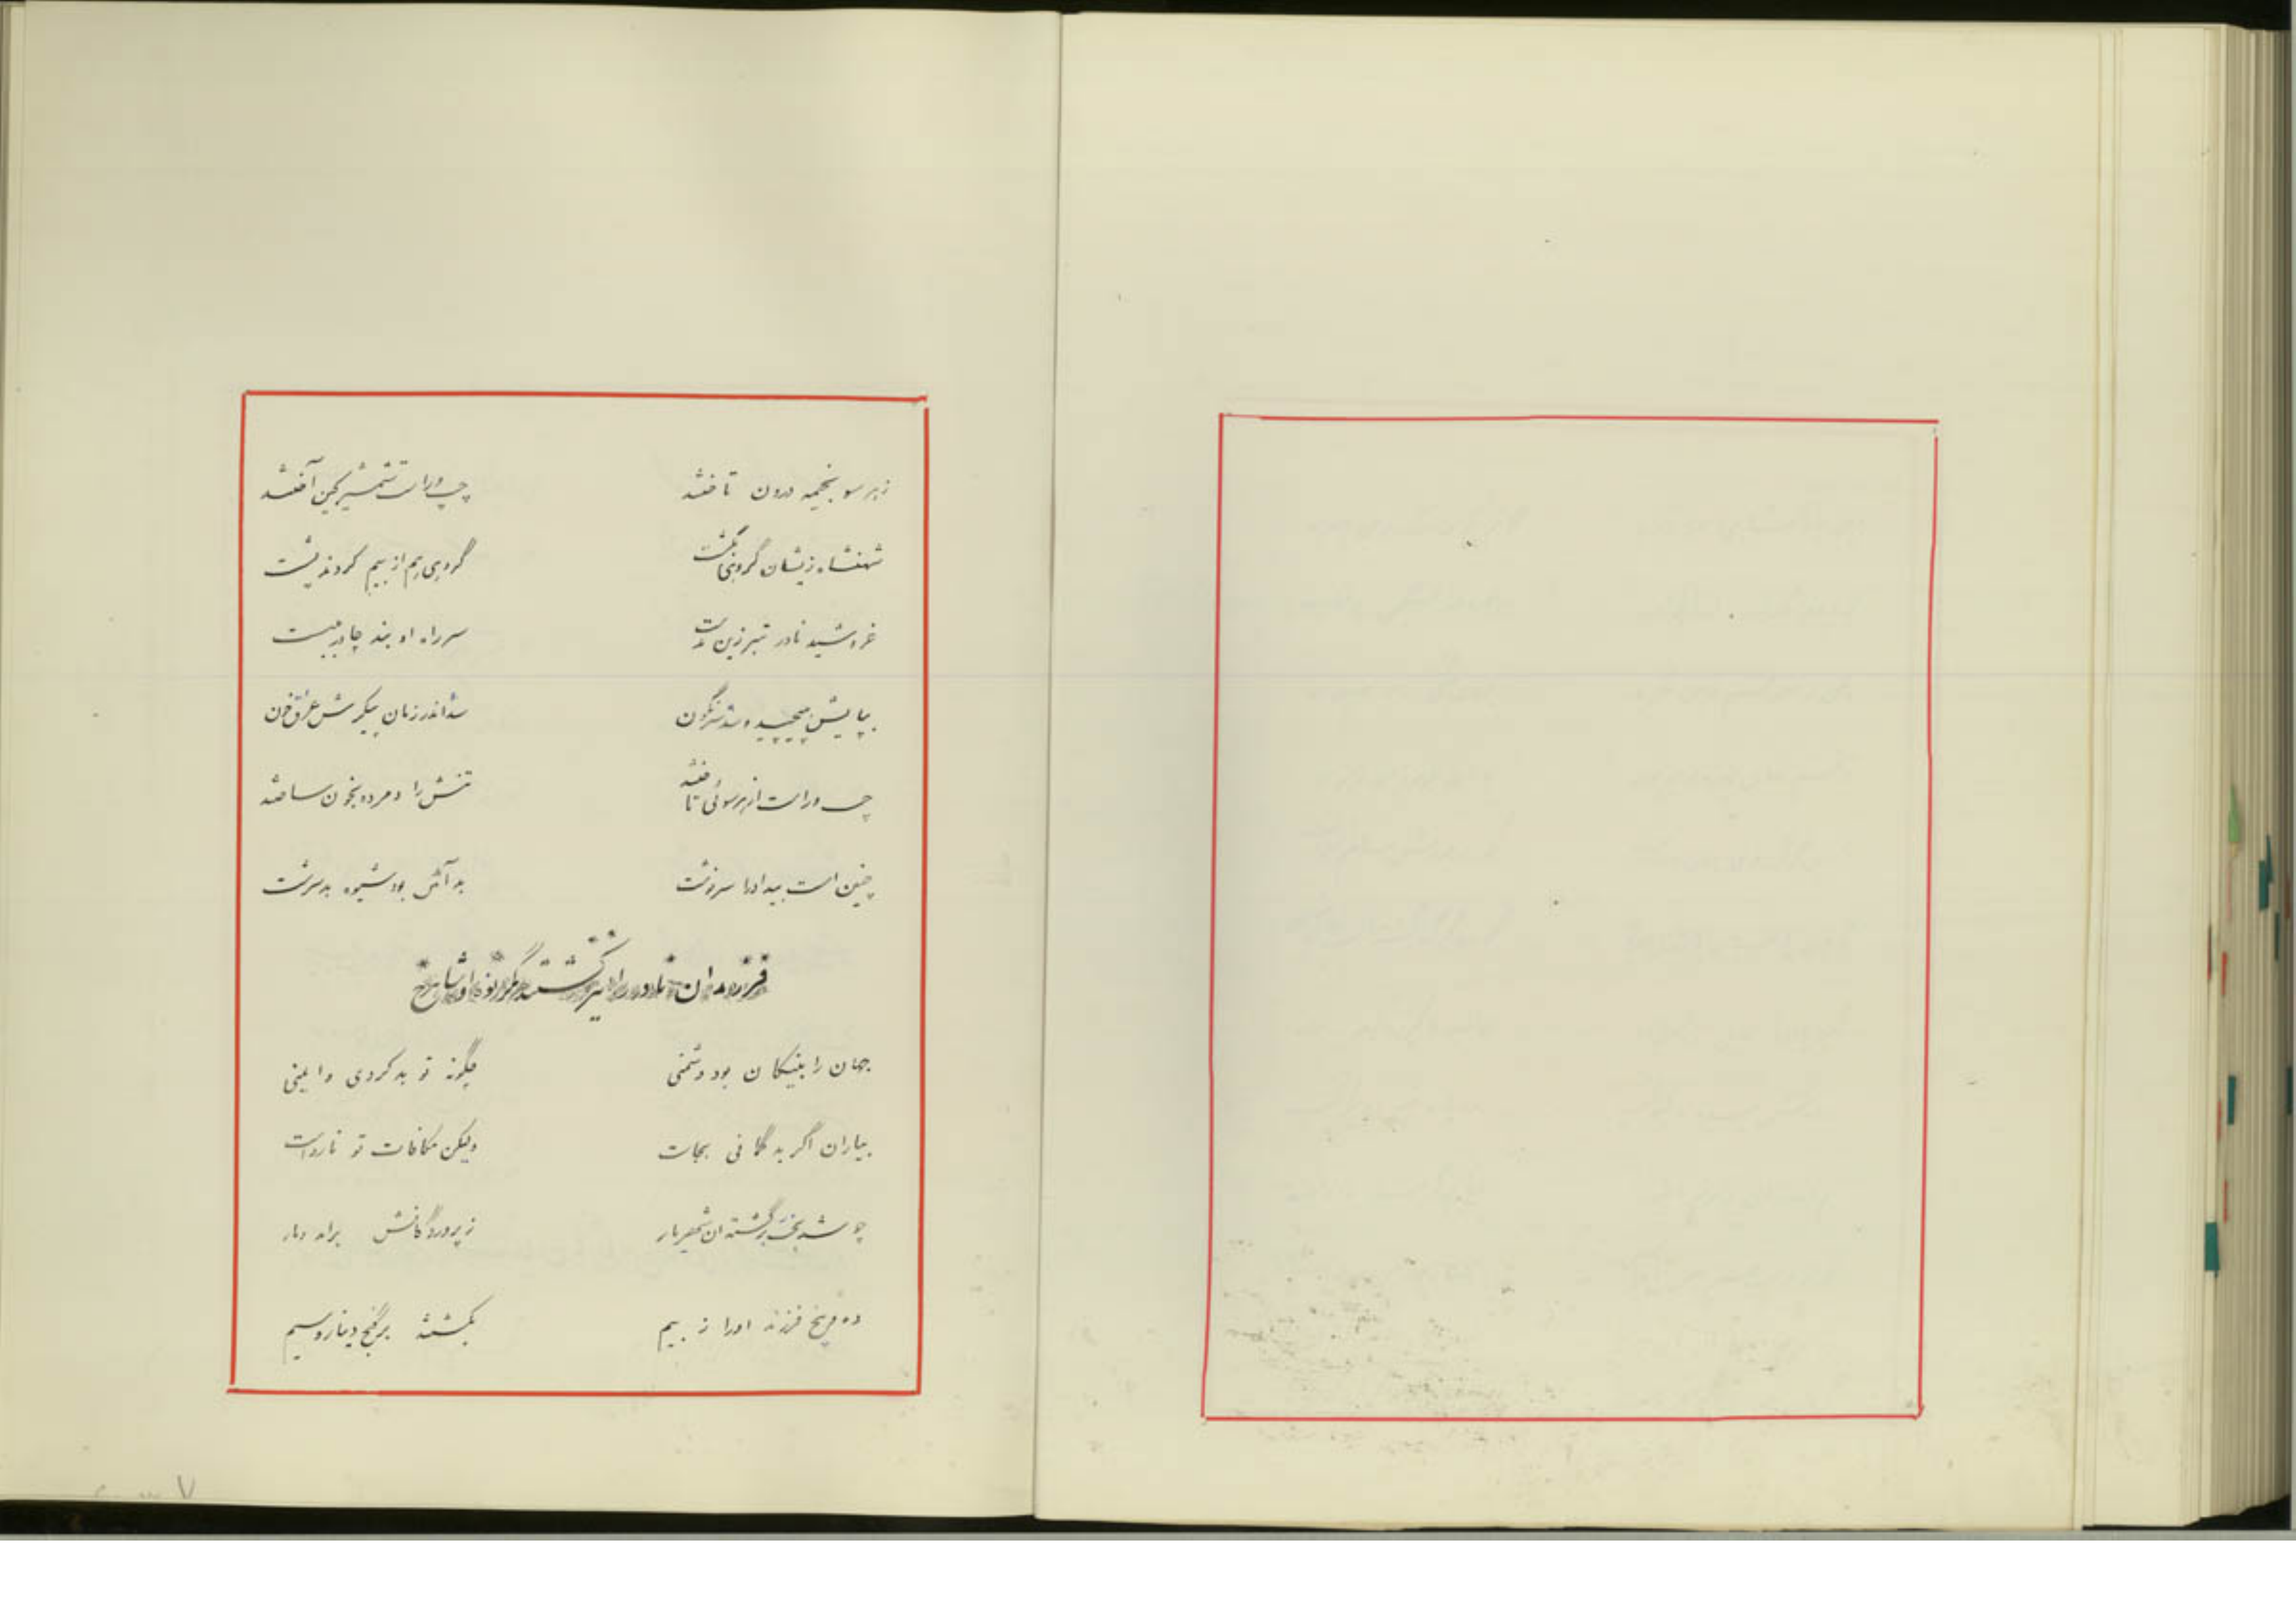 ز هر سو بخیمه درون تاختند چپ و راست شمشیر کین آختند
شهنشاه زیشان گروهی بکشت گروهی هم از بیم کردند پشت
خروشید نادر تبرزین بدست سر راه او بند چادر ببست
بپایش بپیچید و شد سرنگون شد اندر زمان پیکرش غرق خون
چپ و راست از هر سوئی تاختند تنش را و مرده بخون ساختند
چنین است بیداد را سرنوشت بد آتش بود شیوه بدسرشت
فرزندان نادر را نیز کشتند مگر نوه او شاهرخ
جهان را بنیکان بود دشمنی چگونه تو بد کردی و ایمنی
بیاران اگر بد گمانی بجاست ولیکن مکافات تو نارواست
چو شد بخت برگشته ان شهریار ز پروردگانش برامد دمار
ده و پنج فرزند اورا ز بیم بکشتند بر گنج دینار و سیم